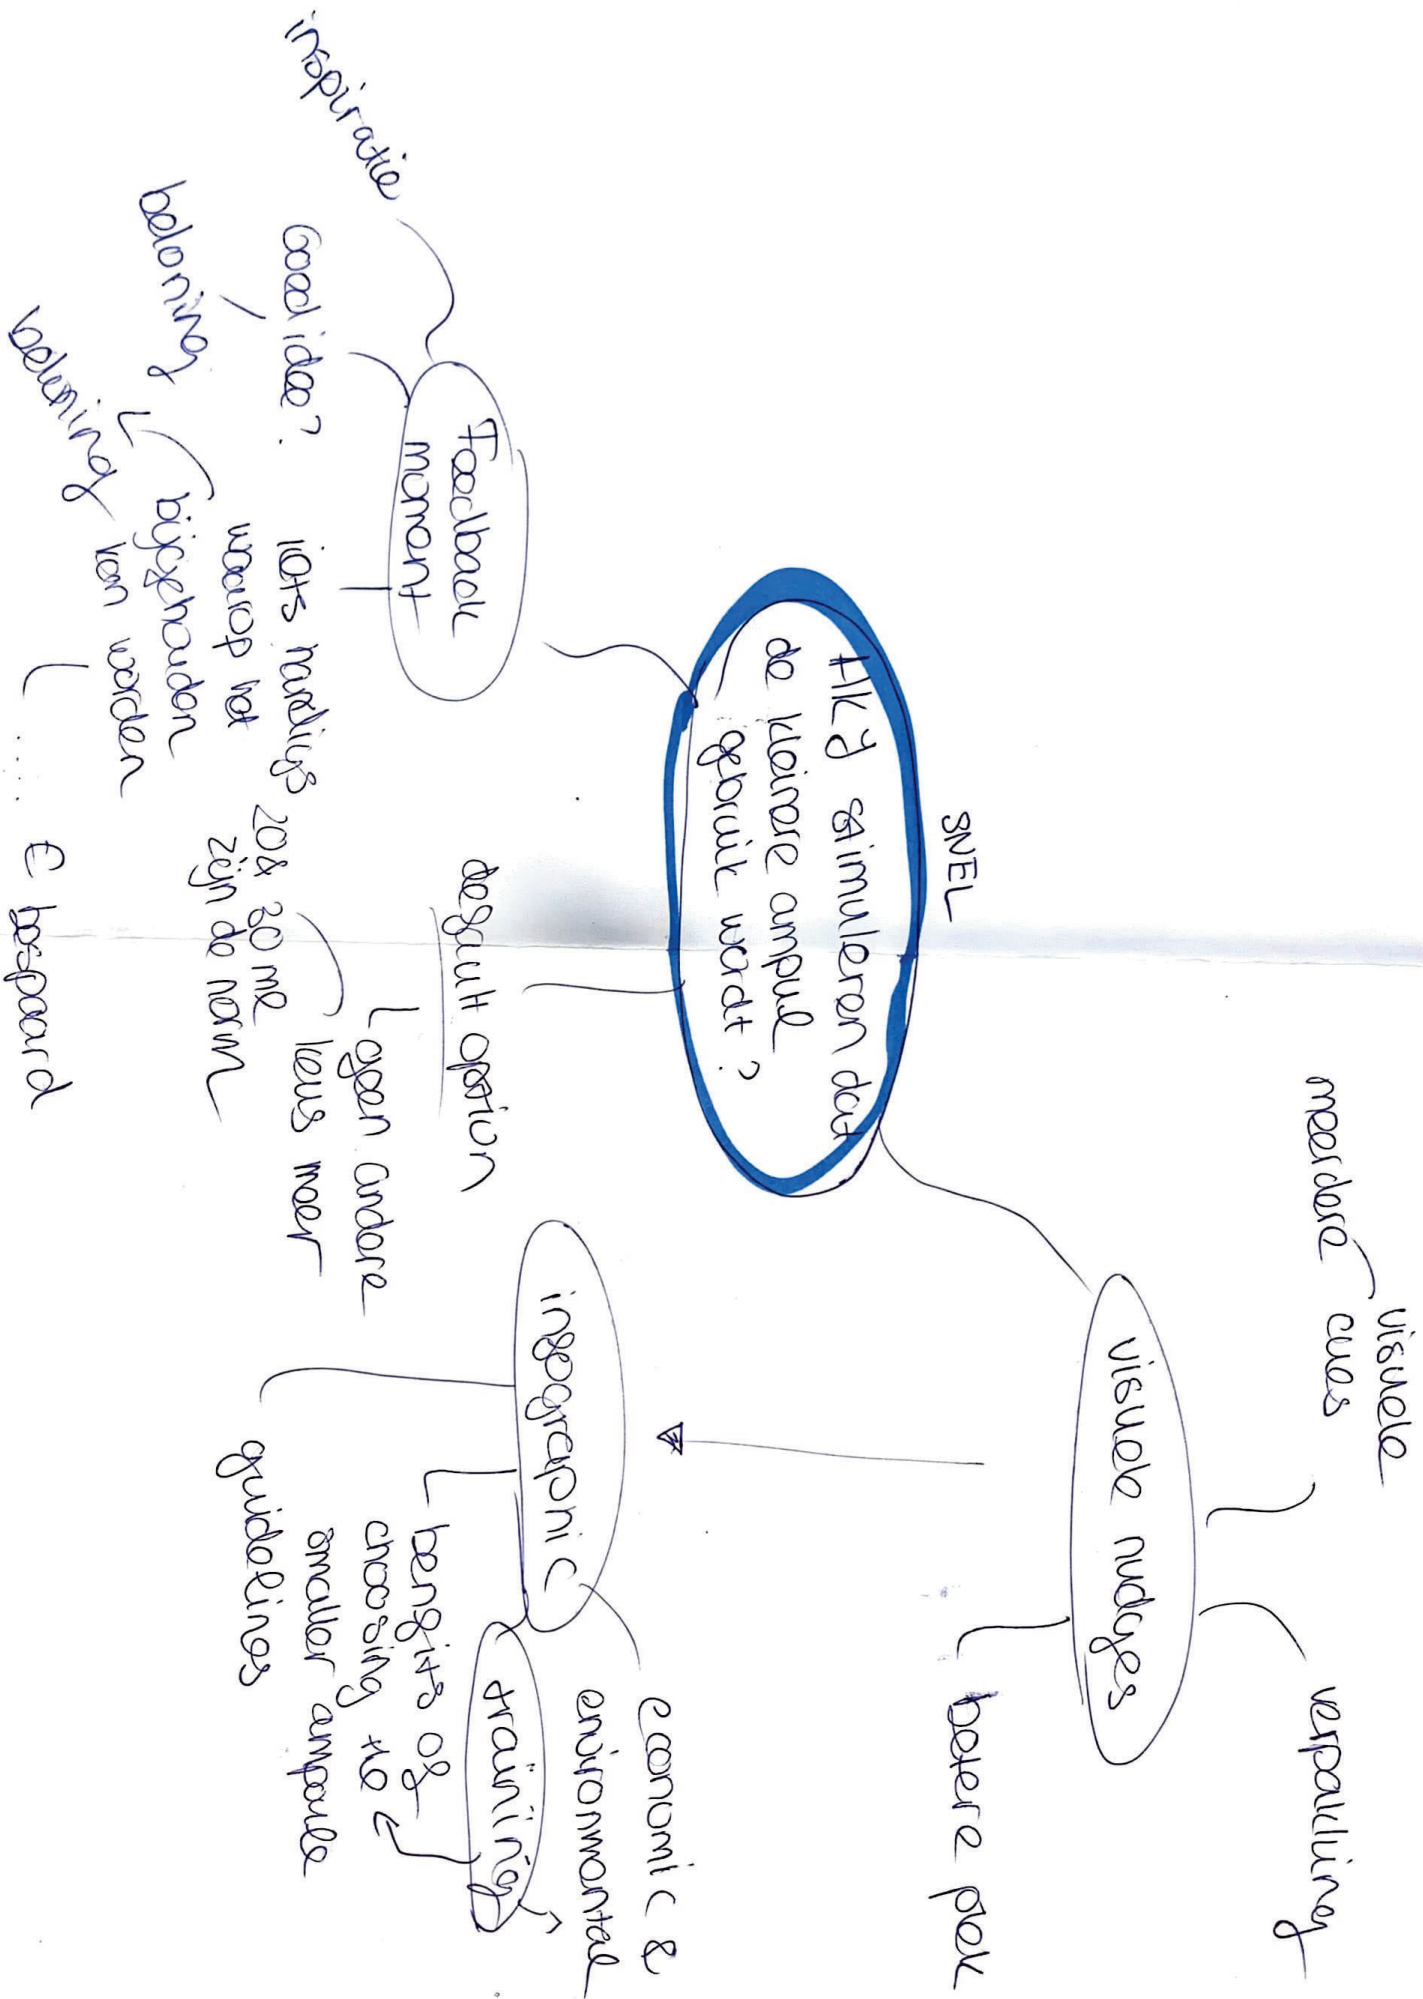 SNEL
Hk y stimuleren dat
de kleinere ampul
gebruik wordt?
visuele nudges
visuele
meerdere cues
verpakking
betere plek
infographic
economic &
environmental
training
benefits of
choosing the
smaller ampoule
guidelines
default option
geen andere
keus meer
20 & 30 ml
zijn de norm
Feedback
moment
inspiratie
Goed idee?
beloning
iets handigs
waarop het
bijgehouden
kan worden
beloning
.... € bespaard